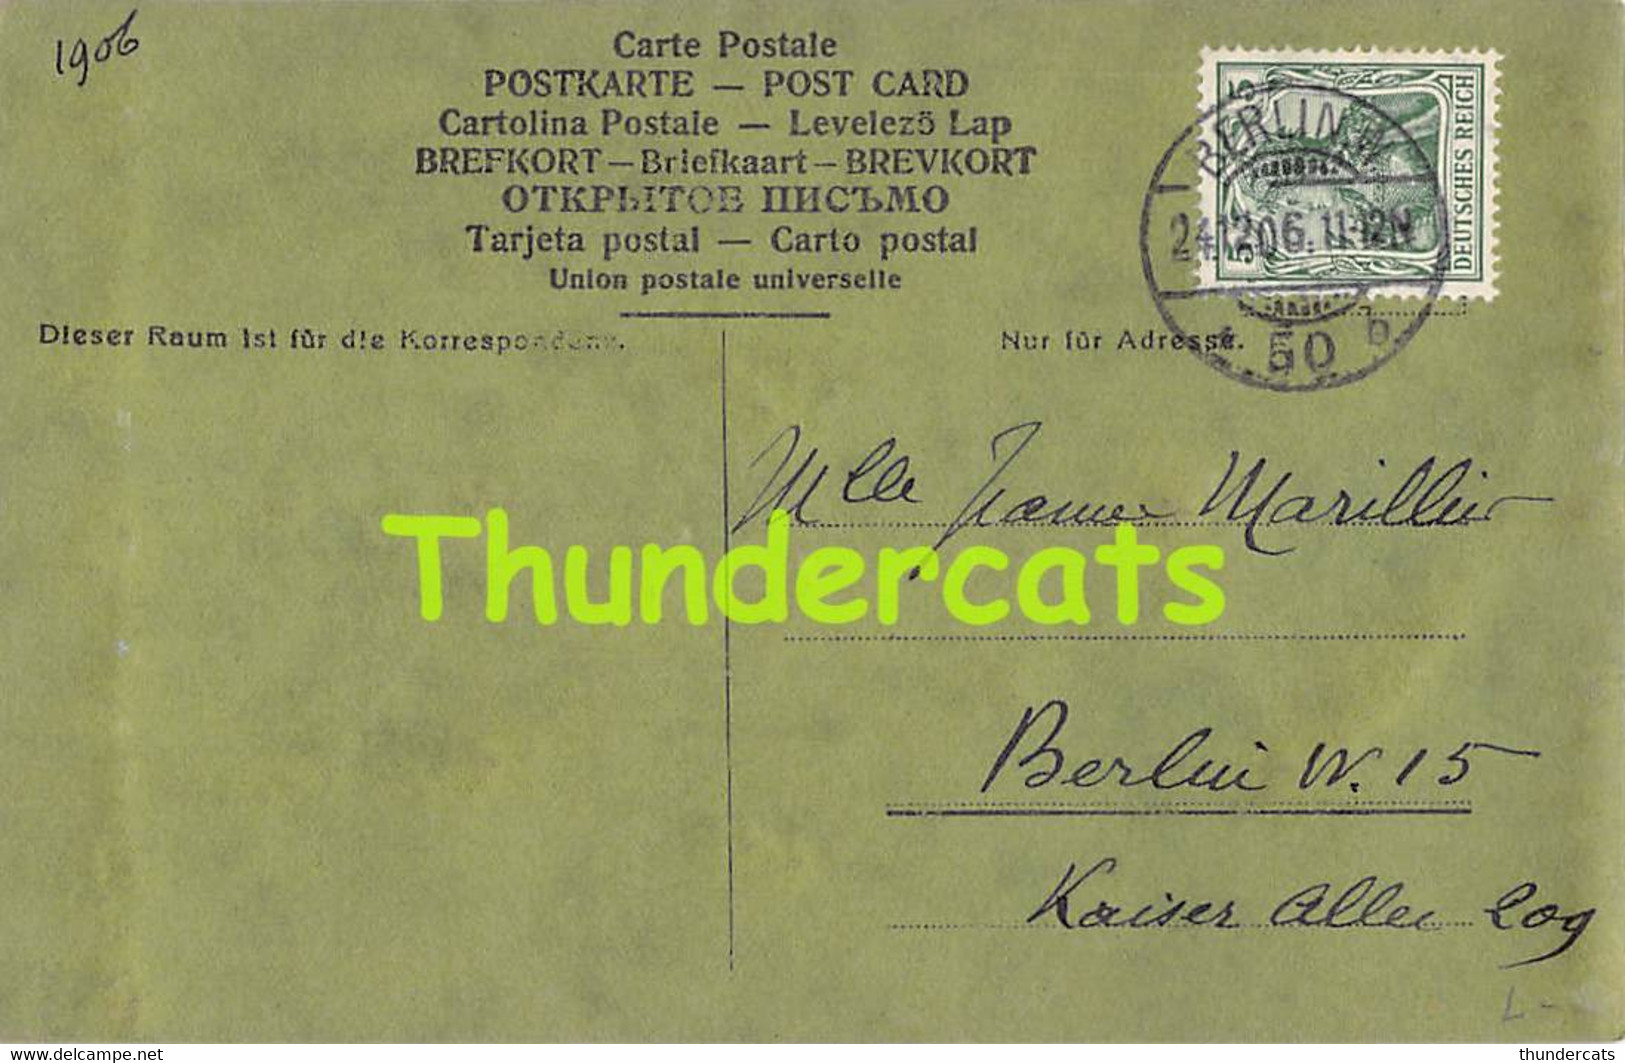 1906
Carte Postale
POSTKARTE — POST CARD
Cartolina Postale — Levelező Lap
BREFKORT — Briefkaart — BREVKORT
ОТКРЫТОЕ ПИСЬМО
Tarjeta postal — Carto postal
Union postale universelle
Dieser Raum ist für die Korrespondenz.
Nur für Adresse.
5
DEUTSCHES REICH
5
BERLIN.W
24.12.06. 11-12N
* 50 b
Mlle Jeanne Marillier
Thundercats
Berlin W. 15
Kaiser Allee 209
L-
www.delcampe.net
thundercats